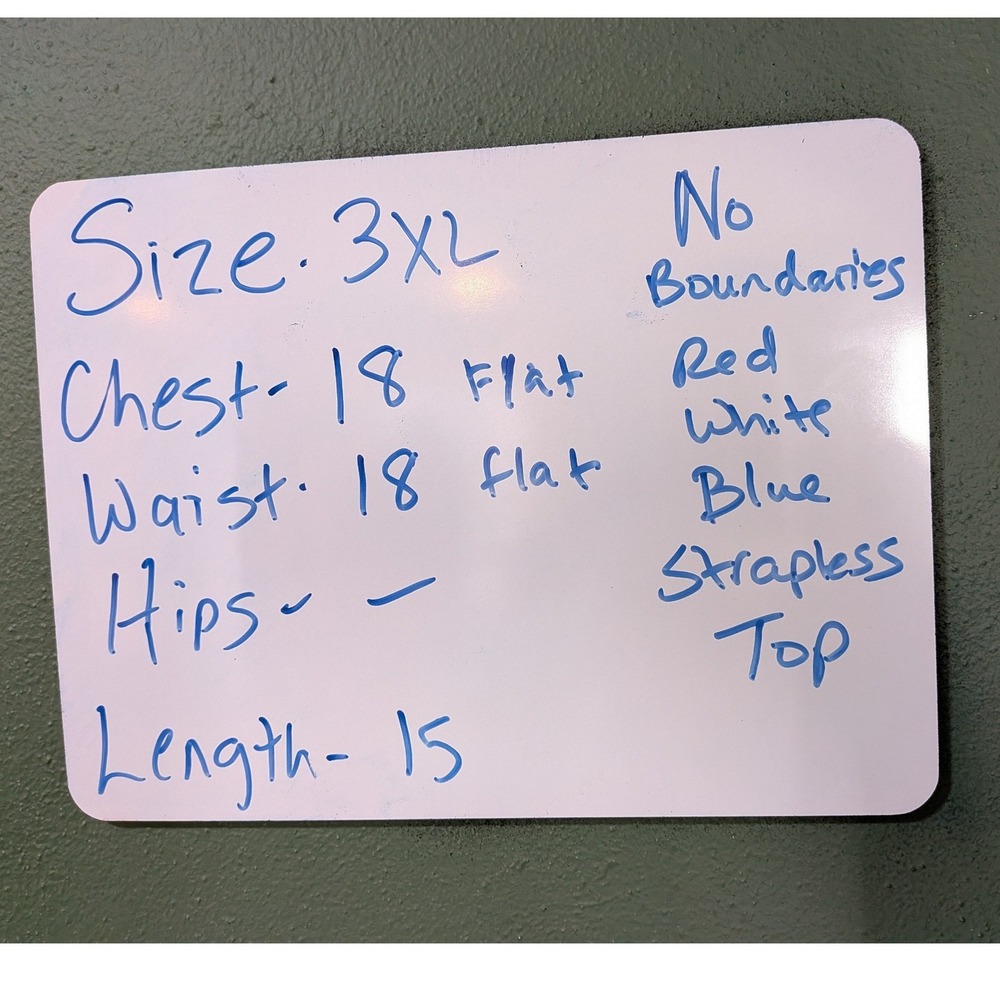 Size. 3XL
Chest- 18 Flat
Waist. 18 flat
Hips- -
Length- 15
No
Boundaries
Red
White
Blue
Strapless
Top